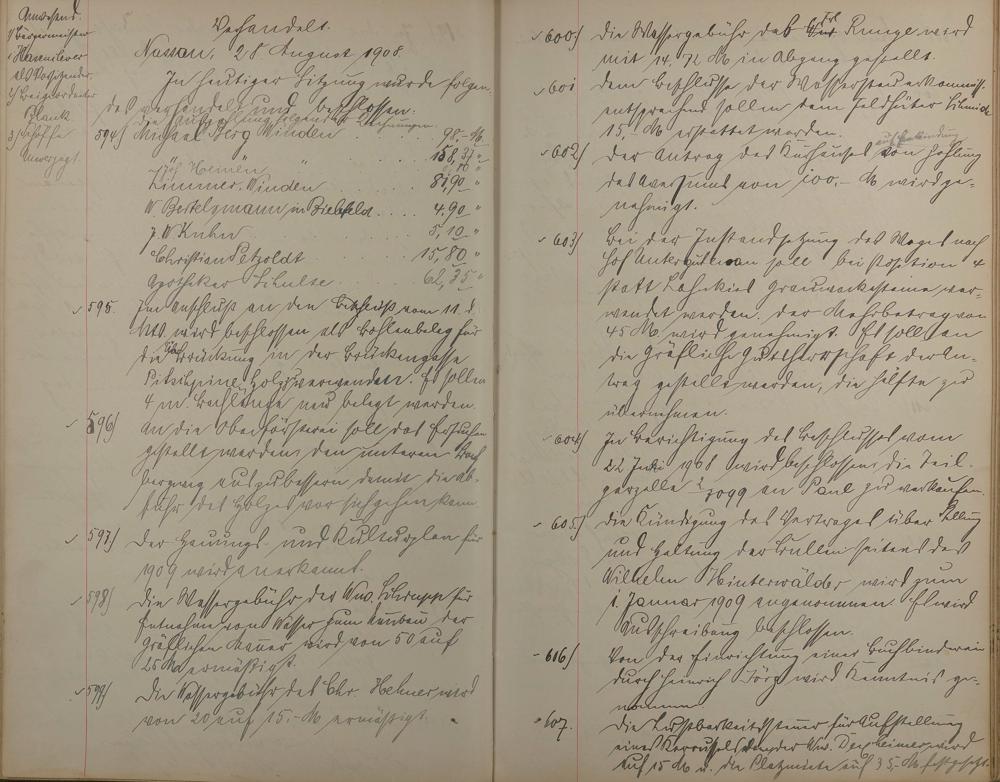 Anwesend.
1/ Bürgermeister
Hasenclever
als Vorsitzender.
2/ Beigeordneter
Plank
3/ Schöffe
Unverzagt.
Verhandelt.
Nassau, 28 August 1908.
In heutiger Sitzung wurde folgen-
des verhandelt und beschlossen.
die Auszahlung folgender Rechnungen.
594/ Michael Herg Winden . . . 98,- M
Jos Heinen . . . 158,37 "
Zimmer, Winden . . . 81,90 "
W Bertelsmann in Bielefeld . . . . 4.90 "
J. W Kuhn . . . 5,10 "
Christian Petzoldt . . . 15,80 "
Apotheker Schulte . . . 62,35 "
595. Im Anschluß an den Beschluß vom 11. d.
Mts wird beschlossen als Bohlenbelag für
die Überbrückung in der Brückengasse
Pitchpine Holz zu verwenden. Es sollen
4 m. Bachlänge neu belegt werden.
596/ An die Oberförsterei soll das Ersuchen
gestellt werden den unteren
bergweg auszubessern damit die Ab-
fuhr des Holzes vor sich gehen kann.
597/ Der Hauungs- und Kulturplan für
1909 wird anerkannt.
598/ Die Wassergebühr der Ww. Schrupp für
Entnahme von Wasser zum Neubau der
Gräflichen Mauer wird von 50 auf
25 M ermäßigt.
599/ Die Wassergebühr des Chr. Hehner wird
von 20 auf 15.- M ermäßigt.
600/ Die Wassergebühr des Frl Runge wird
mit 14.72 M in Abgang gestellt.
601 Dem Beschlusse der Wassersteuerkommiss.
entsprechend sollen dem Feldhüter Schmidt
15,- M erstattet werden.
602/ Der Antrag des Kurhauses von Zahlung
des Aversums von 100.- M wird ge-
nehmigt.
603/ Bei der Instandsetzung des Weges nach
Hof soll bei Position 4
statt Lahnkies Grauwackesteine ver-
wendet werden. Der Mehrbetrag von
45 M wird genehmigt. Es soll an
die Gräfliche Gutsherrschaft der An-
trag gestellt werden, die Hälfte zu
übernehmen.
604/ In Berichtigung des Beschlusses vom
22 Juli 1908 wird beschlossen die Teil-
parzelle an Paul zu verkaufen.
605/ Die Kündigung des Vertrages über Stellung
und Haltung der Bullen seitens des
Wilhelm Hinterwälder wird zum
1. Januar 1909 angenommen. Es wird
Ausschreibung beschlossen.
616/ Von der Einrichtung einer Buchbinderei
durch Heinrich Jörg wird Kenntnis ge-
nommen.
607. Die Lustbarkeitssteuer für Aufstellung
eines Karoussels der Ww. Dexheimer wird
auf 15 M u. die Platzmiete auf 35.- M festgesetzt.